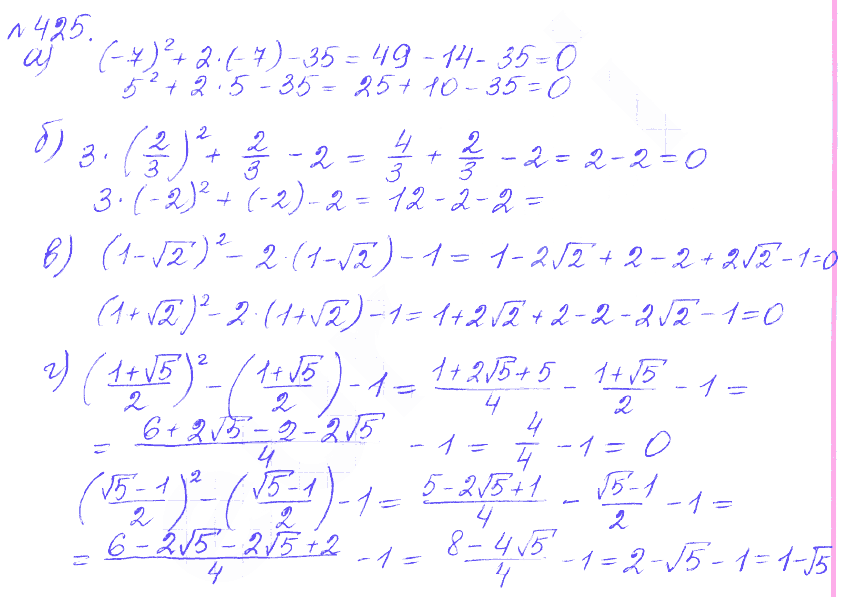 №425.
а) (-7)² + 2·(-7) - 35 = 49 - 14 - 35 = 0
5² + 2·5 - 35 = 25 + 10 - 35 = 0
б) 3·(2/3)² + 2/3 - 2 = 4/3 + 2/3 - 2 = 2 - 2 = 0
3·(-2)² + (-2) - 2 = 12 - 2 - 2 =
в) (1-√2)² - 2·(1-√2) - 1 = 1 - 2√2 + 2 - 2 + 2√2 - 1 = 0
(1+√2)² - 2·(1+√2) - 1 = 1 + 2√2 + 2 - 2 - 2√2 - 1 = 0
г) ((1+√5)/2)² - ((1+√5)/2) - 1 = (1+2√5+5)/4 - (1+√5)/2 - 1 =
= (6+2√5-2-2√5)/4 - 1 = 4/4 - 1 = 0
((√5-1)/2)² - ((√5-1)/2) - 1 = (5-2√5+1)/4 - (√5-1)/2 - 1 =
= (6-2√5-2√5+2)/4 - 1 = (8-4√5)/4 - 1 = 2-√5-1 = 1-√5